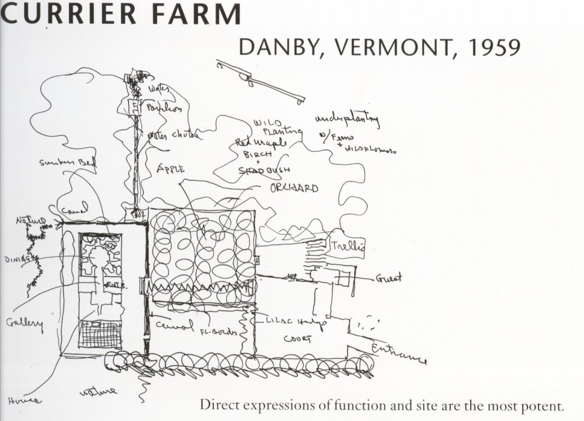 CURRIER FARM
DANBY, VERMONT, 1959
Water
Pavilion
Water chute
WILD
Planting
Red maple
BIRCH
+
SHADBUSH
underplanting
w/ Ferns
+ wildflowers
Sunken Bed
APPLE
ORCHARD
Canal
Nature
Trellis
DINING
Guest
Gallery
Canal
Fl. Borders
LILAC Hedge
COURT
Entrance
House
nature
Direct expressions of function and site are the most potent.